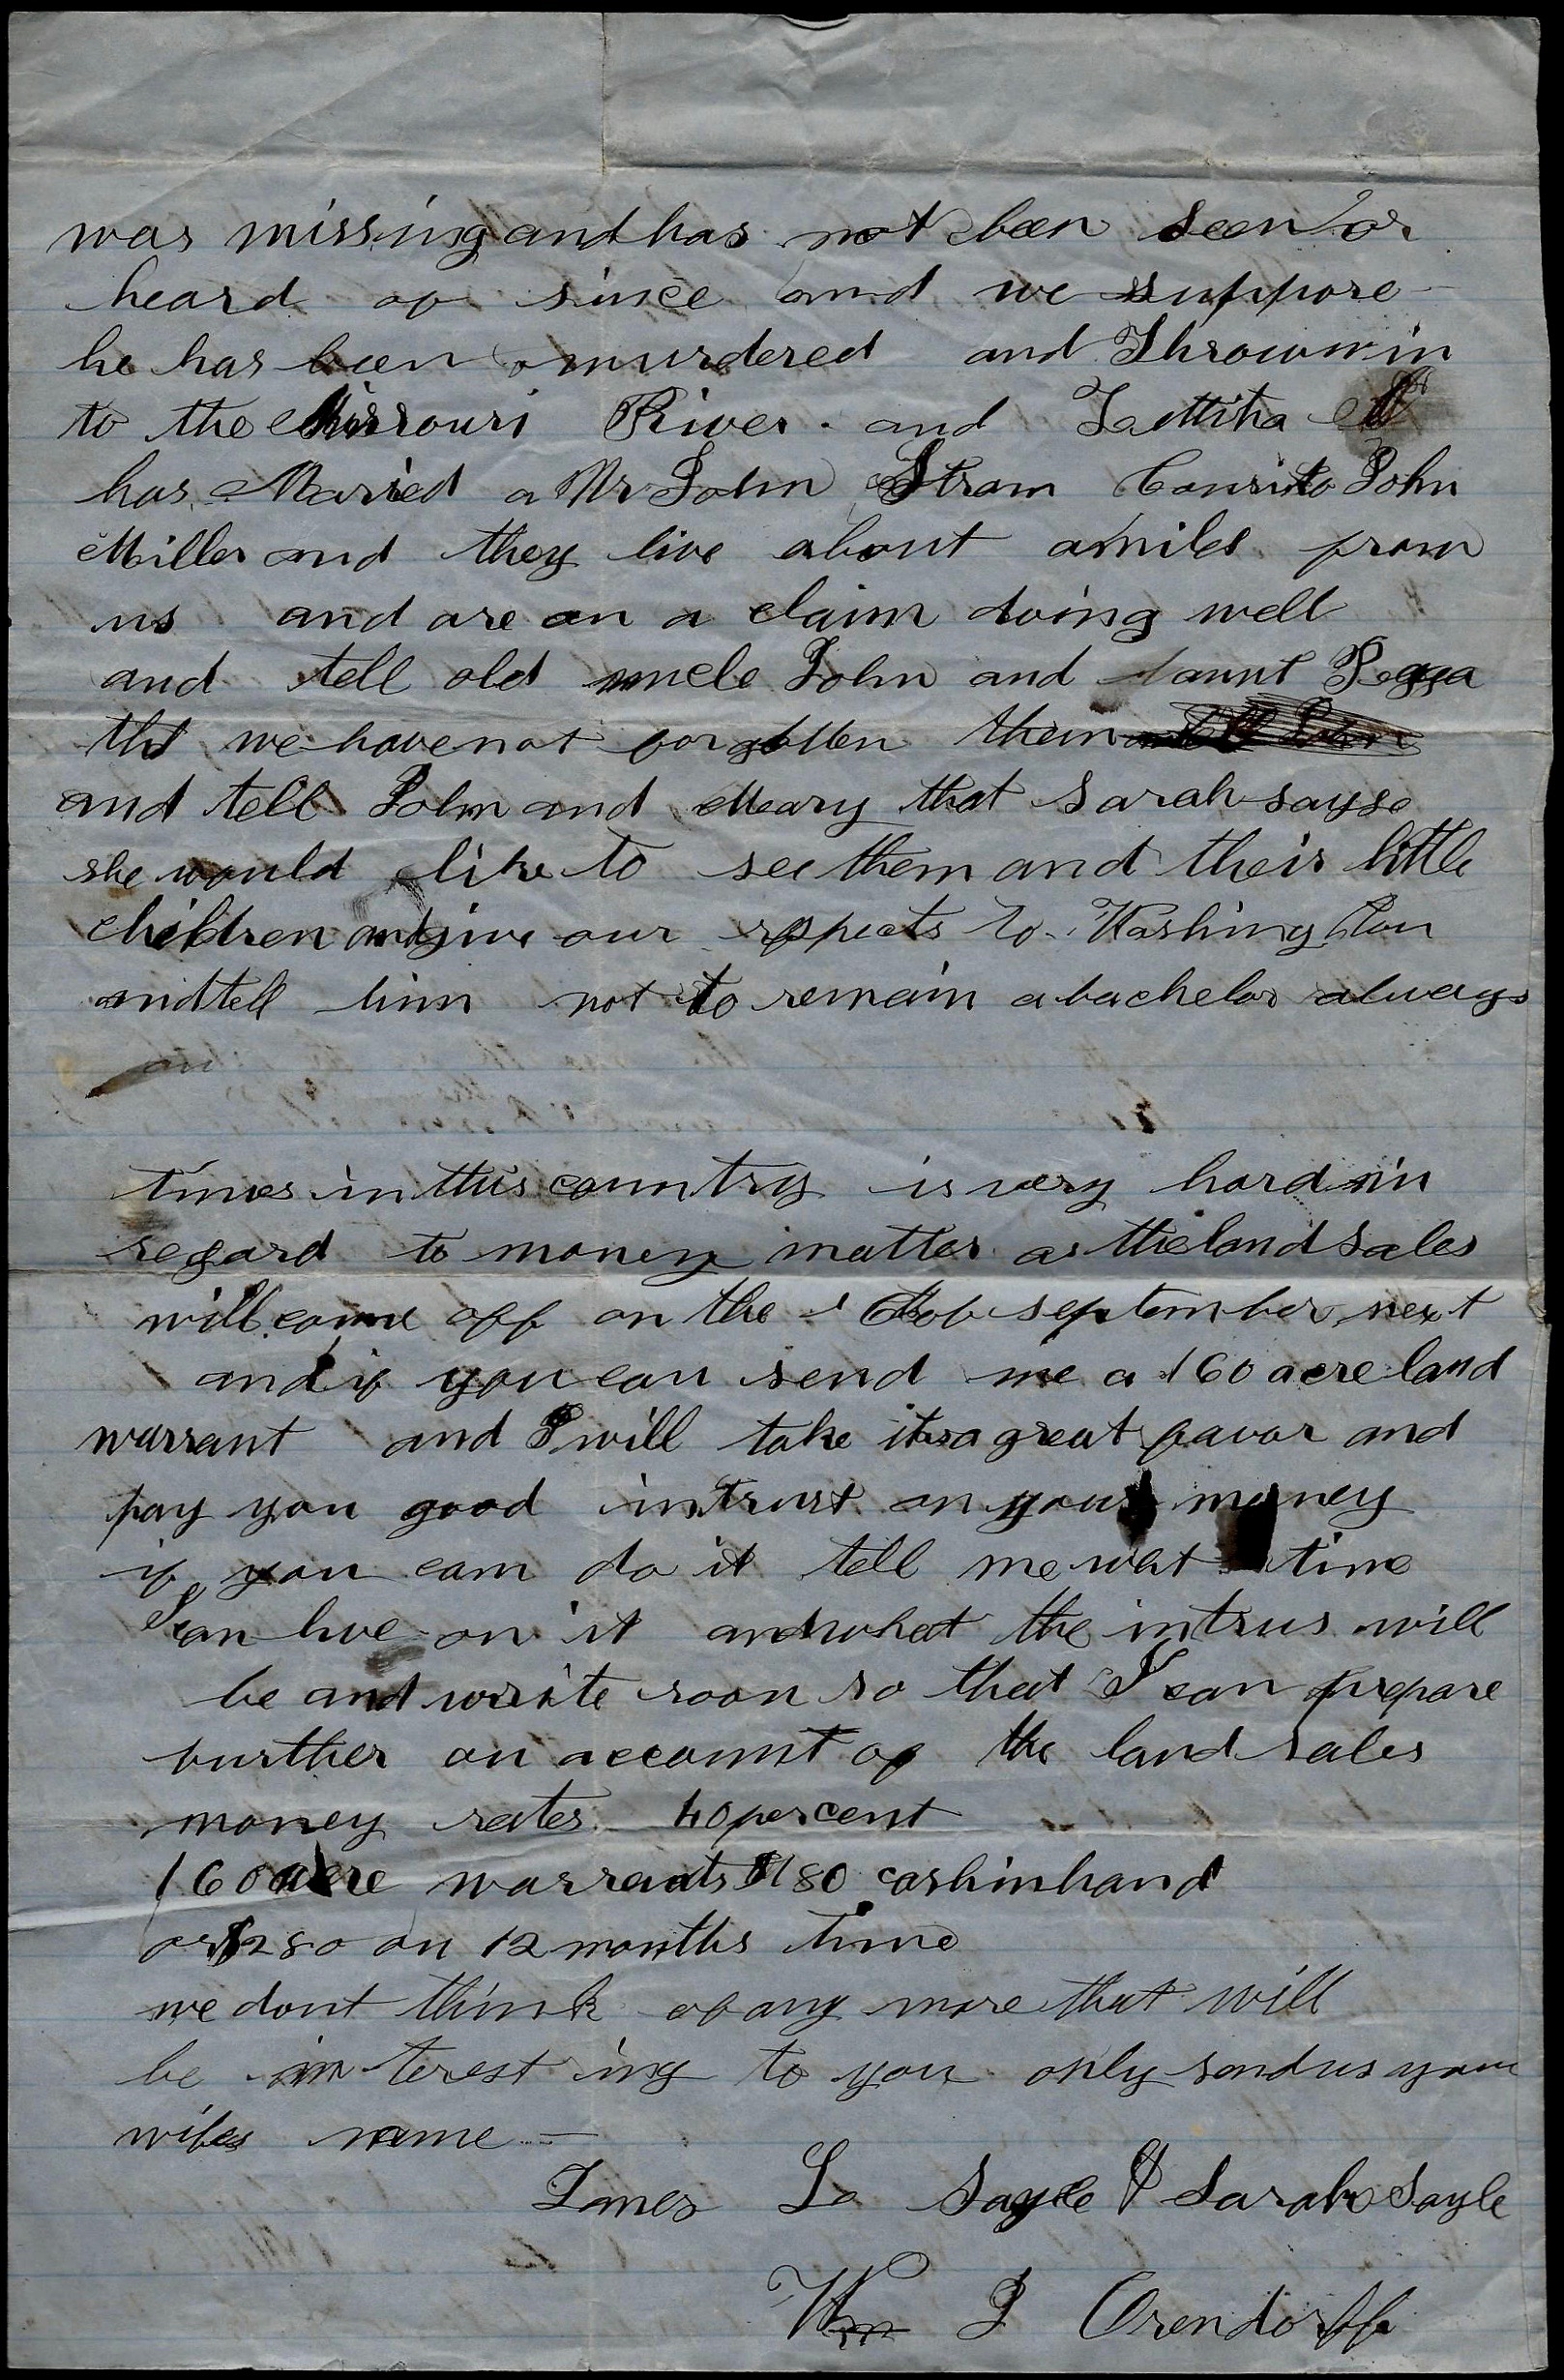 was missing and has not been seen or
heard of since and we suppose
he has been murdered and Thrown in
to the Missouri River. and Lettitha
has Maried a Mr John Stram Cousin to John
Miller and they live about a miles from
us and are on a claim doing well
and tell old uncle John and aunt Pegga
tht we have not forgotten them
and tell John and Meary that Sarah says
she would like to see them and their little
children and give our respects to Washington
and tell him not to remain a bachelor always
an
times in this country is very hard in
regard to money matter as the land sales
will come off on the of september next
and if you can send me a 160 acre land
warrant and I will take it as a great favor and
pay you good intrust on your money
if you can do it tell me what time
I can hve on it and what the intrus will
be and write soon so that I can prepare
further on account of the land sales
money rates 40 per cent
160 acre warrants $180 cash in hand
or $280 on 12 months time
we dont think of any more that will
be interesting to you only send us your
wifes name –
James L Sayle & Sarah Sayle
Wm J Orendorff